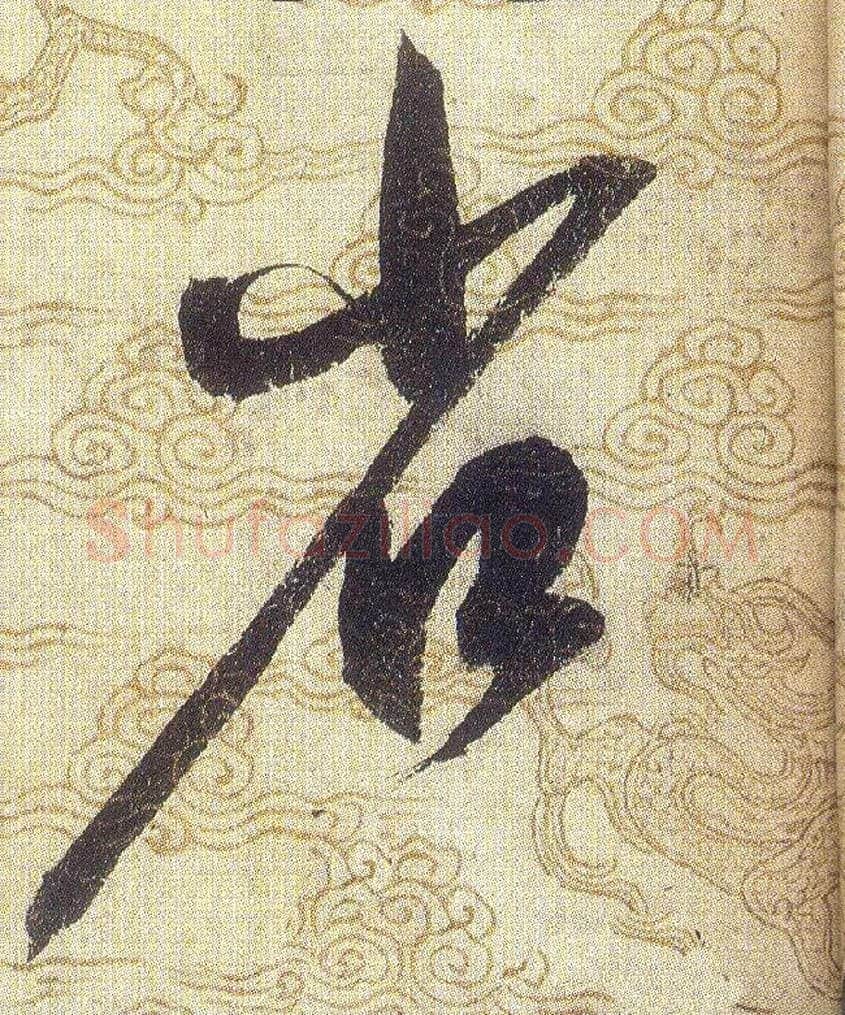 省
Shufaziliao.COM